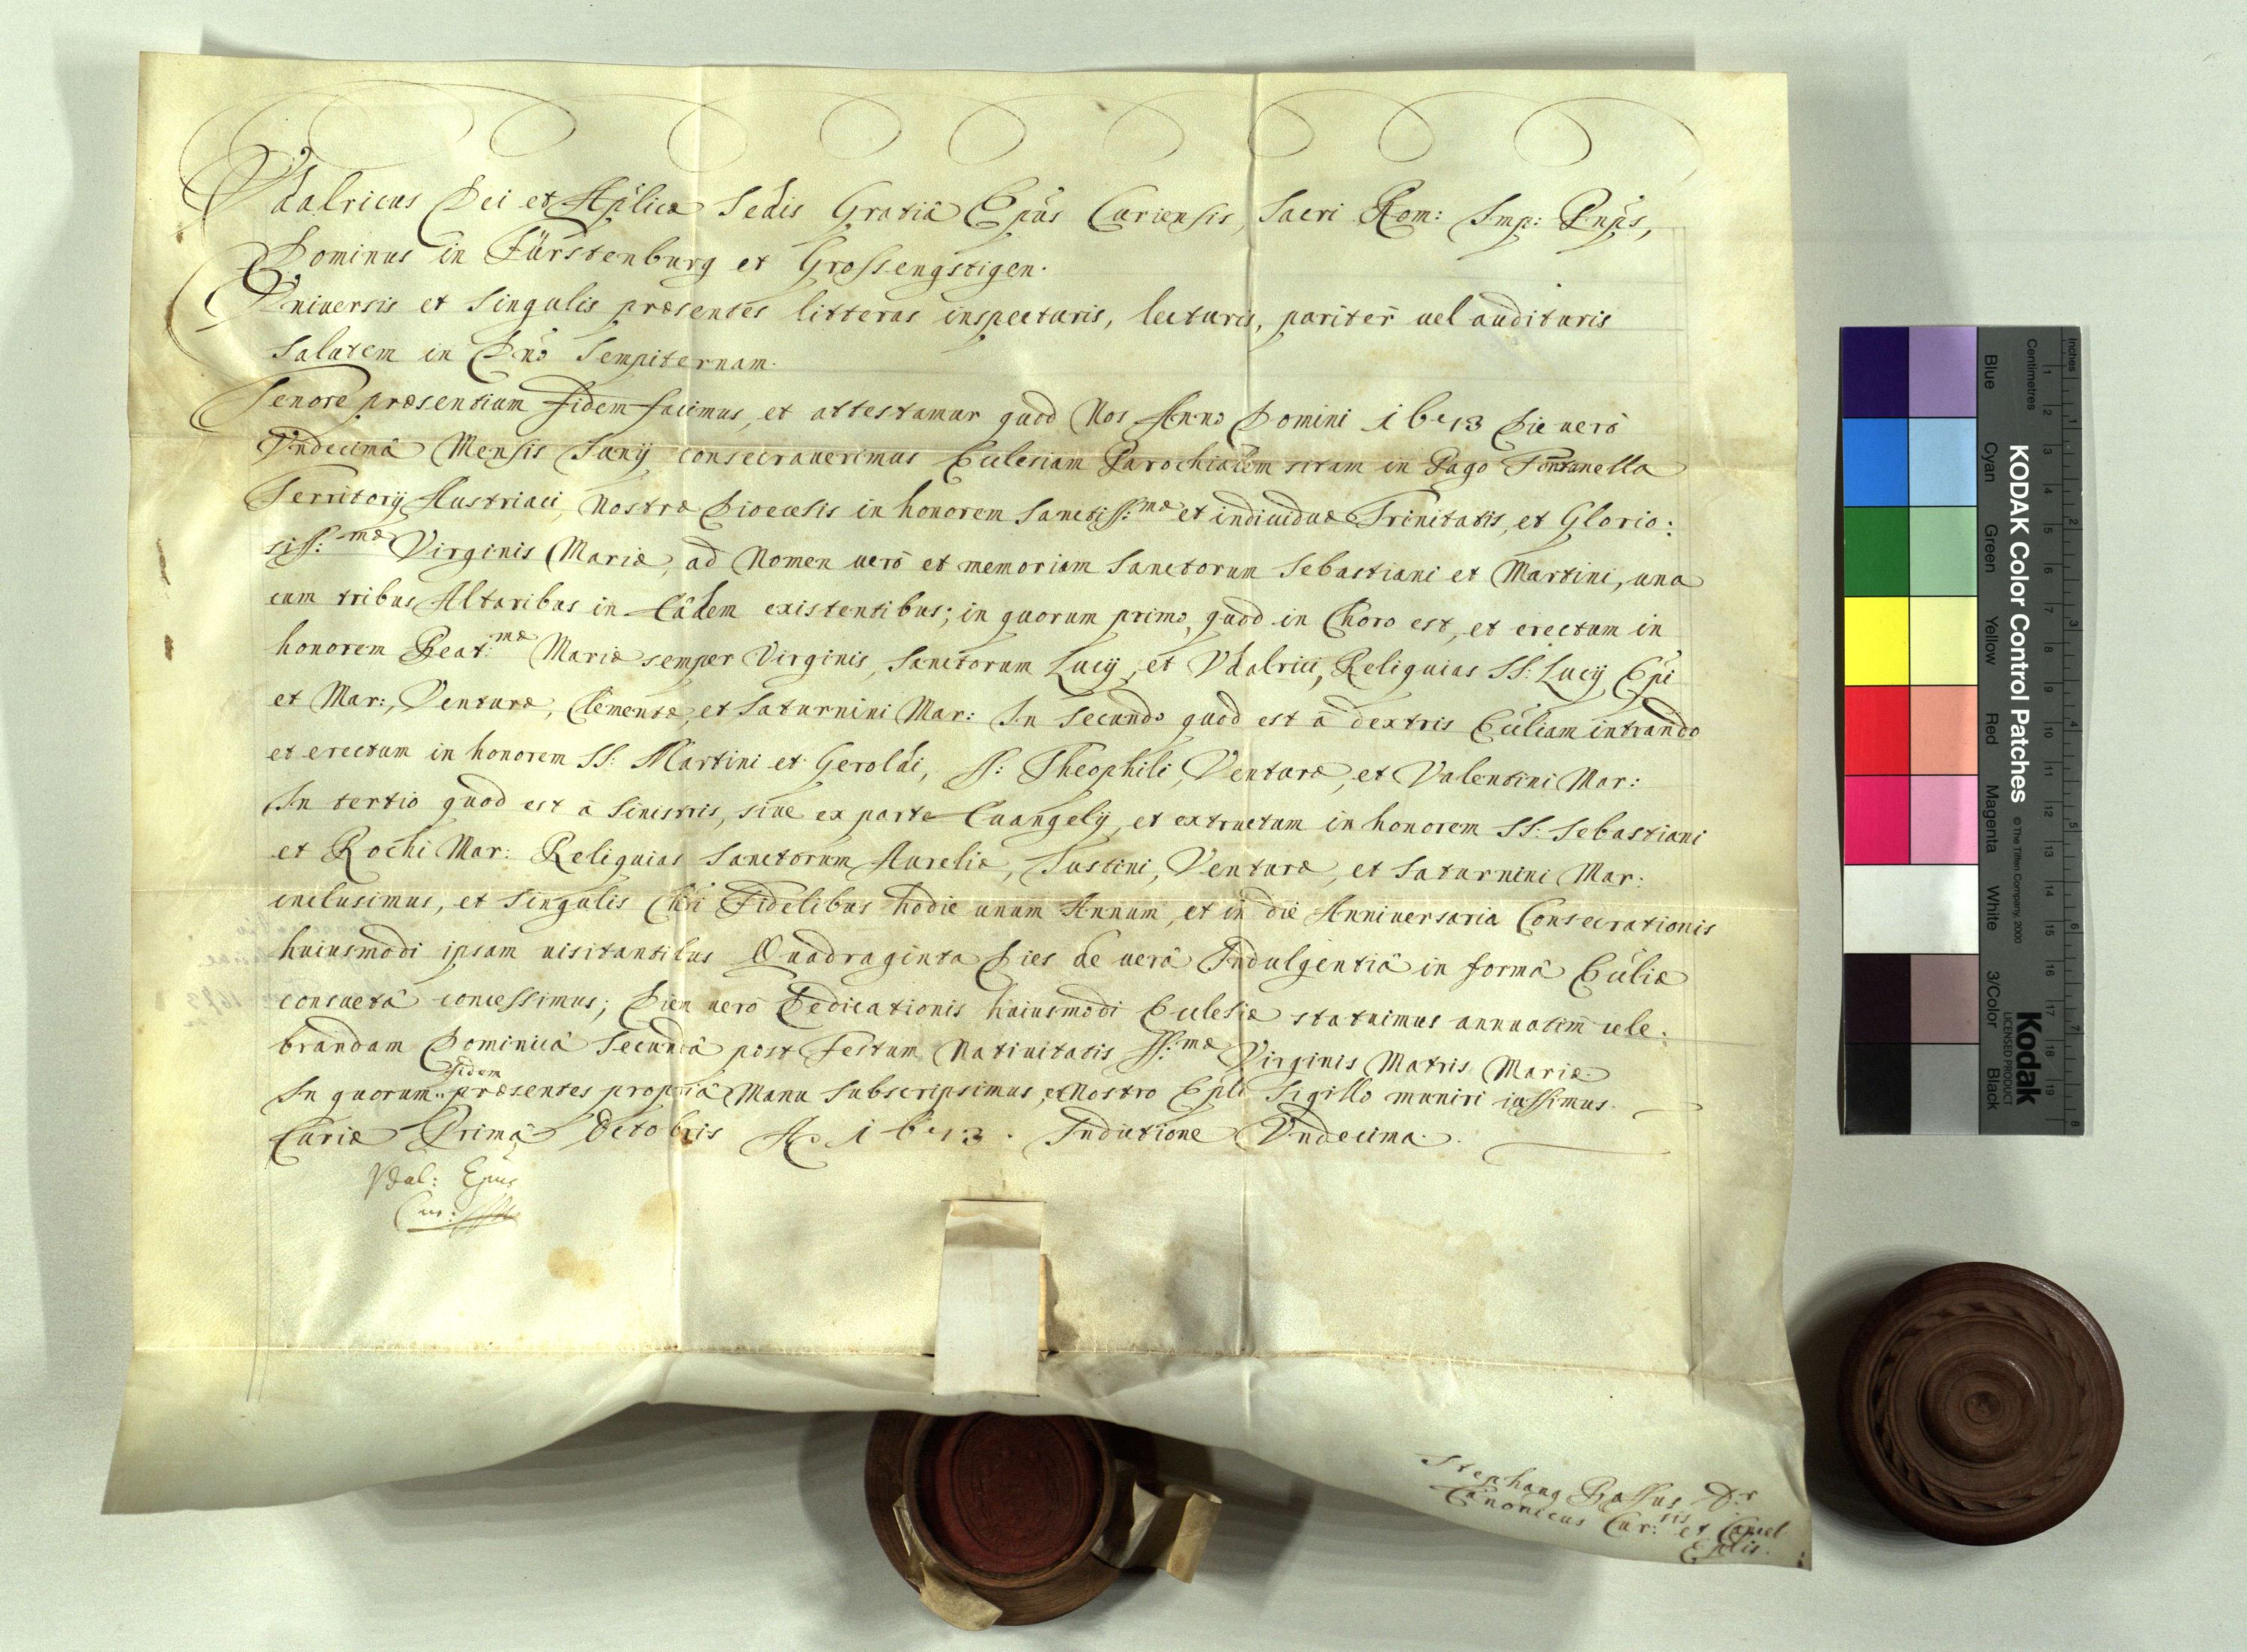 Vdalricus Dei et Aplicæ Sedis Gratiâ Epus Curiensis, Sacri Rom: Imp: Pnps,
Dominus in Fürstenburg et Grossengstigen.
Vniuersis et Singulis præsentes litteras inspecturis, lecturis, pariter uel audituris
Salutem in Dno Sempiternam.
Tenore præsentium fidem facimus, et attestamur quod Nos Anno Domini 1673 Die uero
Vndecimâ Mensis Iunij consecrauerimus Ecclesiam Parochialem sitam in Pago Fontanella
Territorij Austriaci, Nostræ Dioecesis in honorem Sanctiss:mæ et indiuiduæ Trinitatis, et Glorio:
siss:mæ Virginis Mariæ, ad Nomen uerò et memoriam Sanctorum Sebastiani et Martini, una
cum tribus Altaribus in Eâdem existentibus; in quorum primo, quod in Choro est, et erectum in
honorem Beat:mæ Mariæ semper Virginis, Sanctorum Lucij, et Vdalrici, Reliquias SS: Lucij Epi
et Mar:, Venturæ, Clementæ, et Saturnini Mar: In Secundo quod est à dextris Eccliam intrando
et erectum in honorem SS: Martini et Geroldi, SS: Theophili, Venturæ, et Valentini Mar:
In tertio quod est à Sinistris, siue ex parte Euangelij, et extructum in honorem SS: Sebastiani
et Rochi Mar: Reliquias Sanctorum Aureliæ, Iustini, Venturæ, et Saturnini Mar:
inclusimus, et Singulis Chri Fidelibus hodie unum Annum, et in die Anniuersaria Consecrationis
huiusmodi ipsam uisitantibus Quadraginta Dies de uerâ Indulgentiâ in formâ Ecclíæ
consuetâ concessimus; Diem uerò Dedicationis huiusmodi Ecclesiæ statuimus annuatim cele:
brandam Dominicâ Secundâ post Festum Natiuitatis SS:mæ Virginis Matris Mariæ.
In quorum fidem præsentes propriâ Manu Subscripsimus, et Nostro Epli Sigillo muniri iussimus.
Curiæ Primâ Octobris Ao 1673. Indictione Vndecima.
Vdal: Epus
Cur:
Stephang Bassus Dr
Canonicus Cur:sis et Cancel
Eplis.
Inches
Centimetres
1 2 3 4 5 6 7 8 9 10 11 12 13 14 15 16 17 18 19
1 2 3 4 5 6 7 8
KODAK Color Control Patches
© The Tiffen Company, 2000
Kodak
LICENSED PRODUCT
Blue
Cyan
Green
Yellow
Red
Magenta
White
3/Color
Black